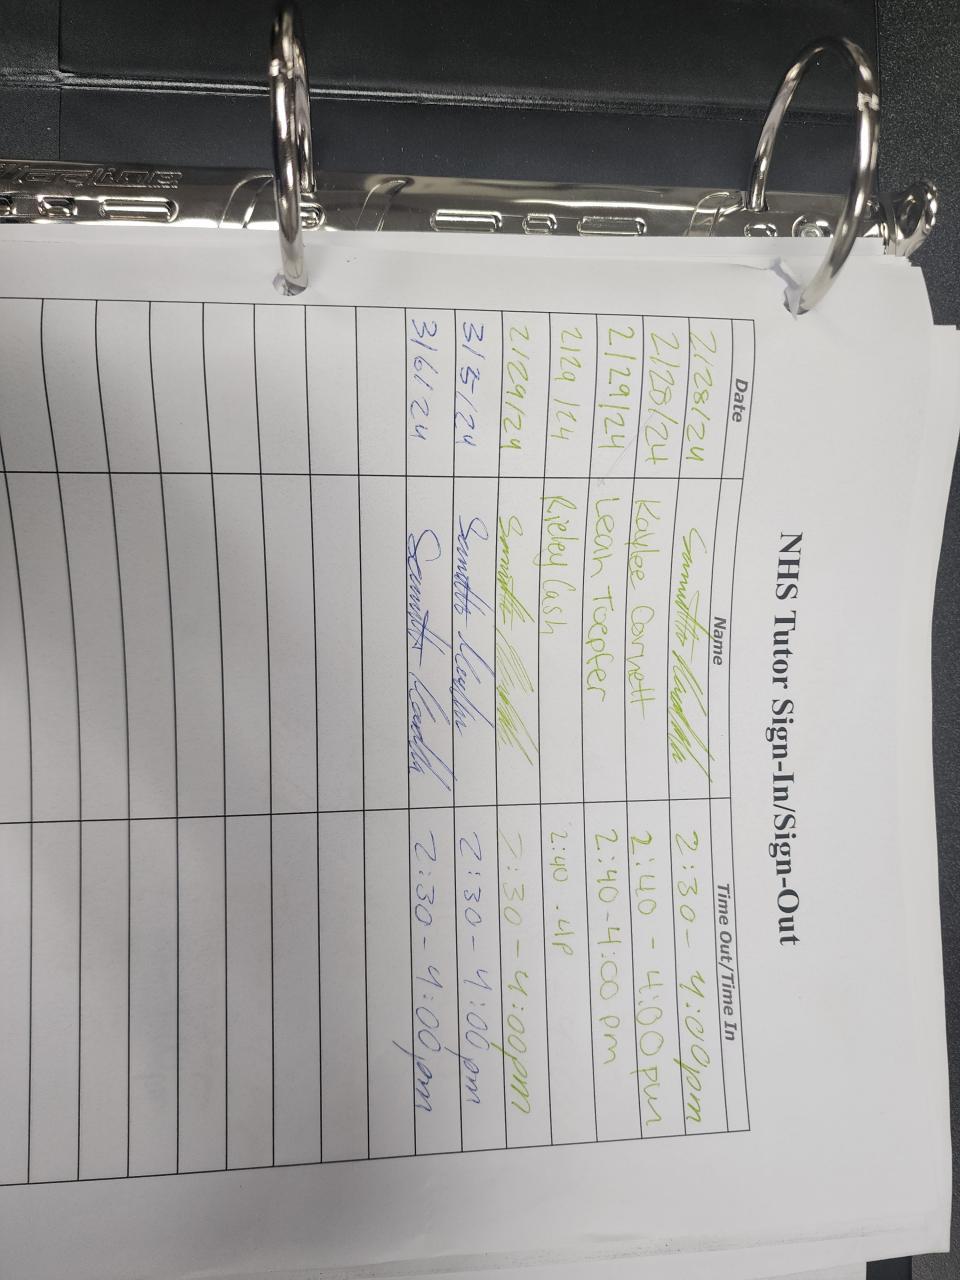 NHS Tutor Sign-In/Sign-Out
Date Name Time Out/Time In
2/28/24 2:30 - 4:00pm
2/28/24 Kaylee Cornett 2:40 - 4:00 pm
2/29/24 Leah Toepfer 2:40-4:00 pm
2/29/24 Rieley Cash 2:40 - 4p
2/29/24 2:30 - 4:00pm
3/5/24 2:30 - 4:00pm
3/6/24 2:30 - 4:00pm